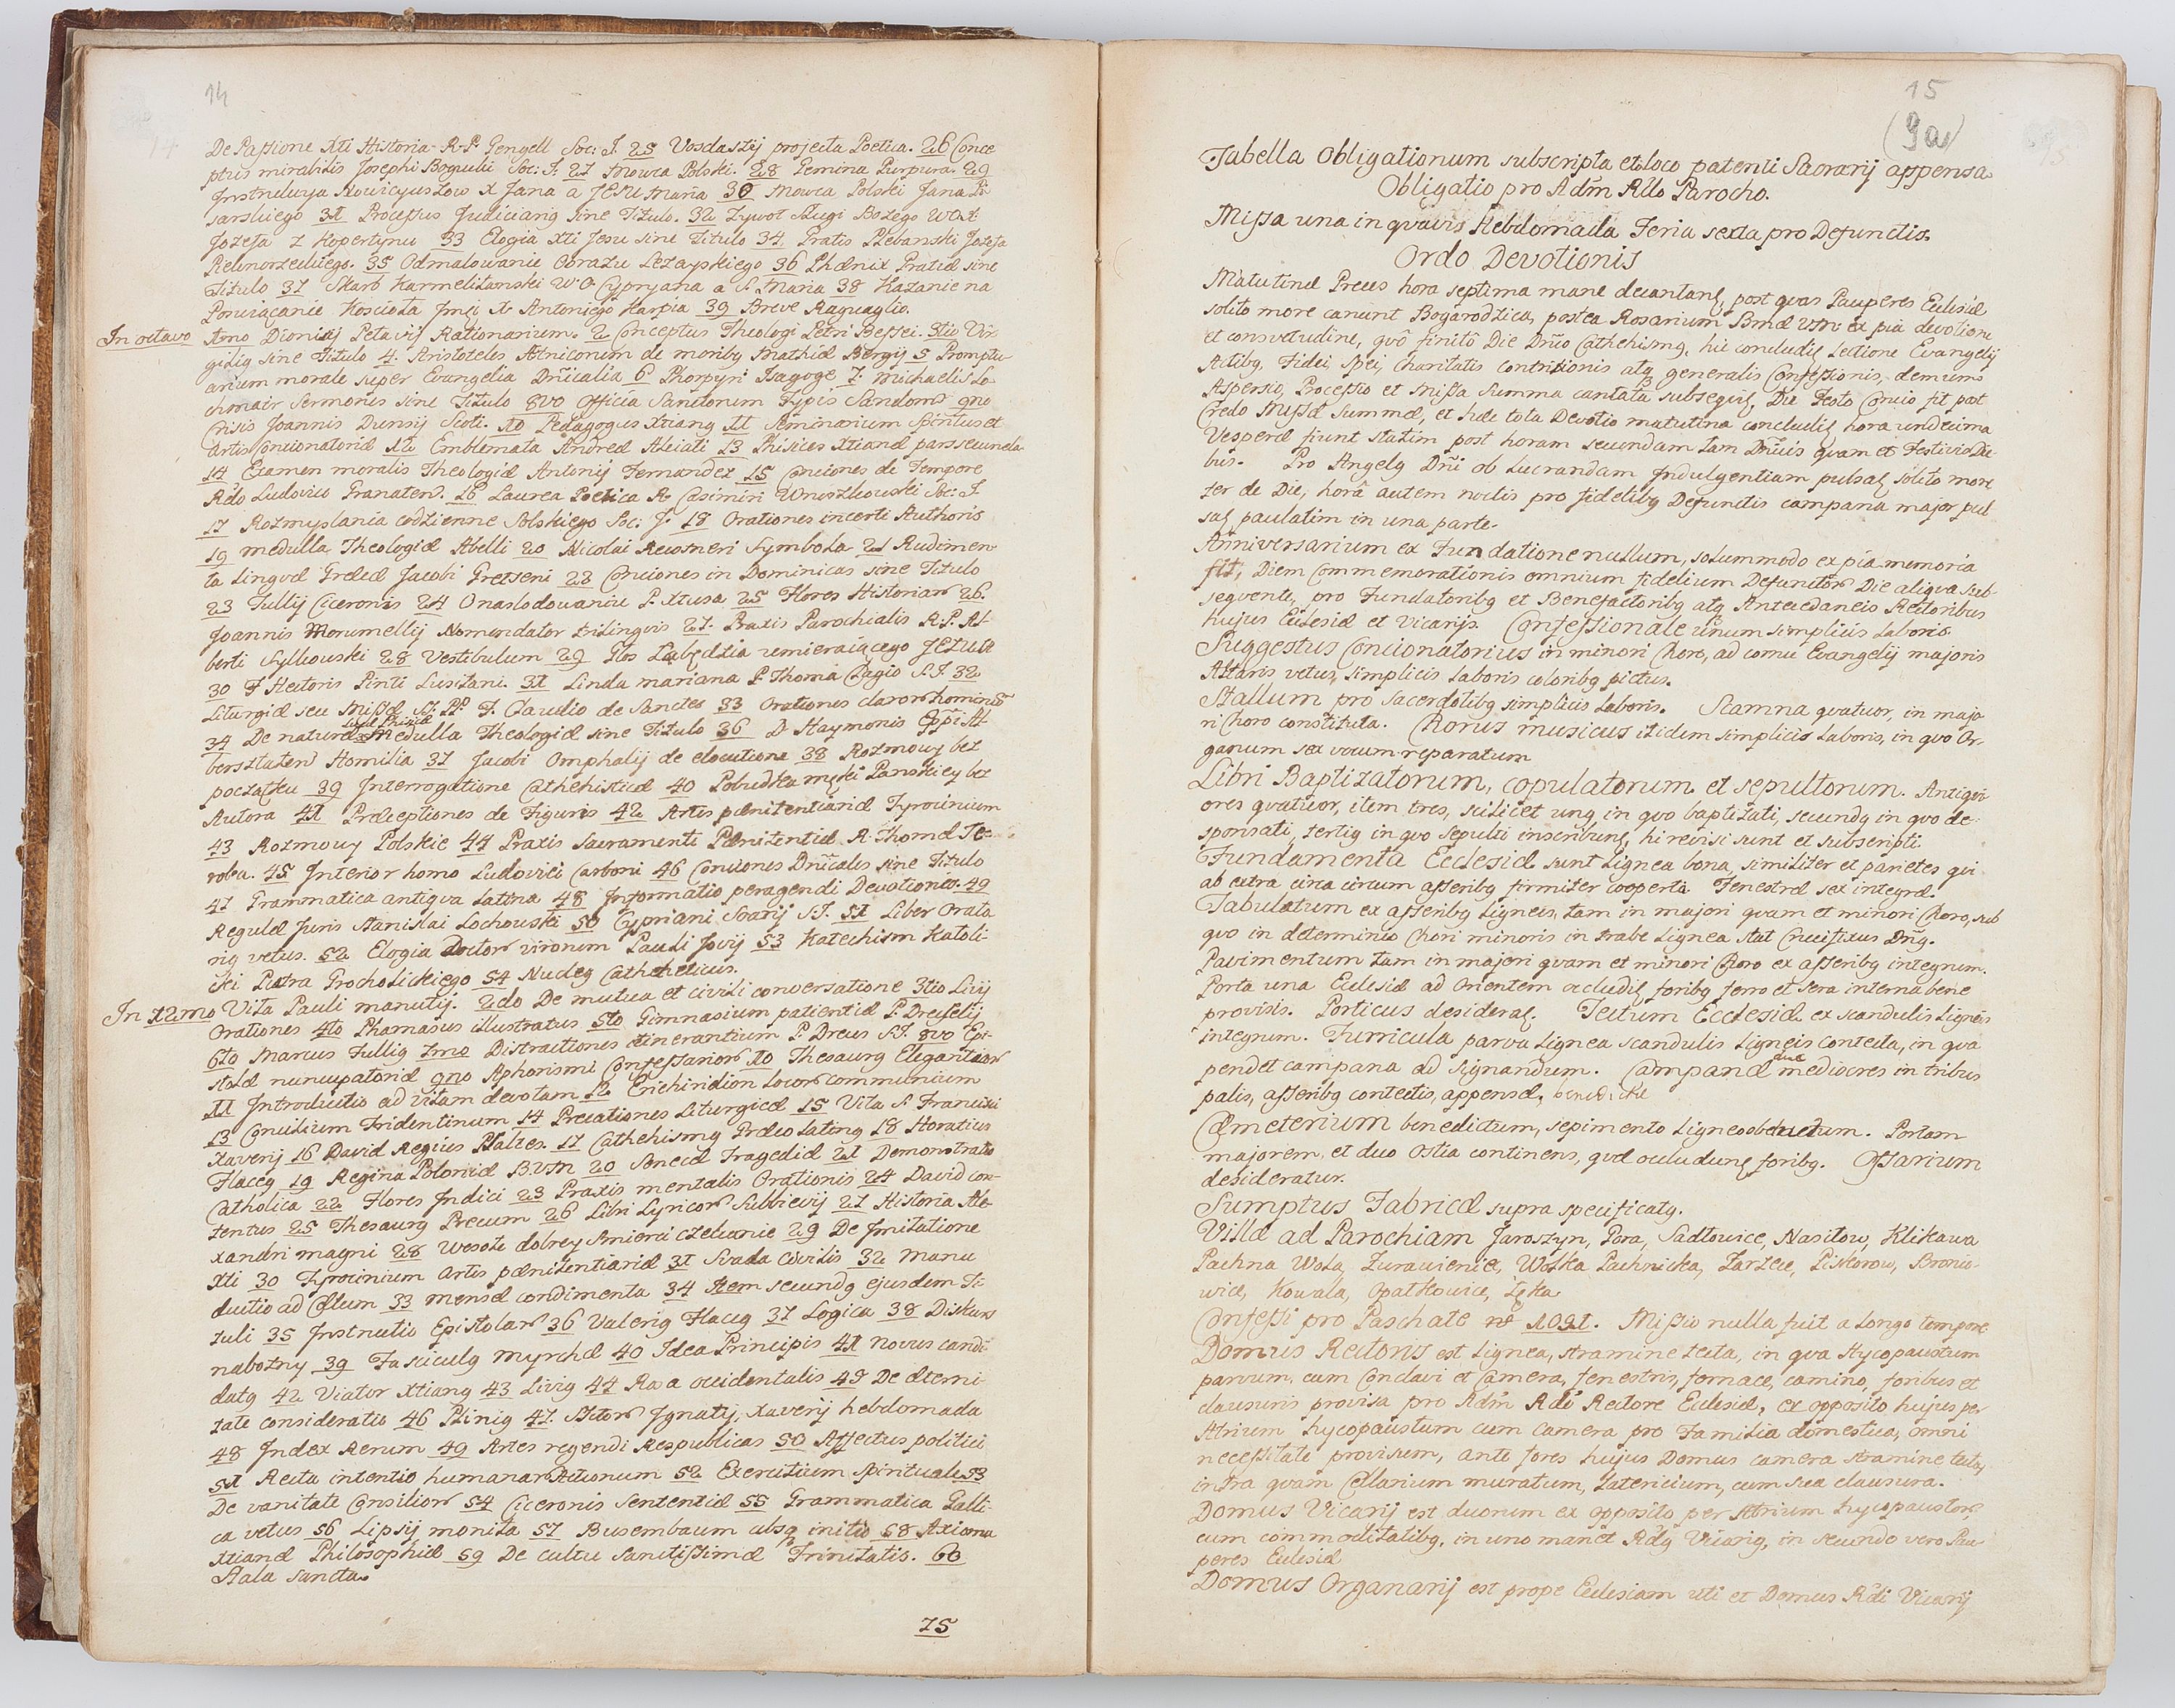 14
De Passione Xti Historia R. P. Gengell Soc: J. 25 Vosdaszij projecta Poetica. 26 Conce
ptus mirabilis Josephi Soc: J. 27 Mowca Polski. 28 Gemina Purpura. 29
Nowicyuszow X Jana a JESU Maria 30 Mowca Polski Jana Pi
sarskiego 31 Processus Judiciarij sine Titulo. 32 Zywot Sługi Bozego
Jozefa z Kopertynu 33 Elogia Xti Jesu sine Titulo 34. Gratis Plebanski Jozefa
35 Odmalowanie Obrazu Lezayskiego 36 Phœnix sine
Titulo 37 Skarb Karmelitanski W O Cypryana a S. Maria 38 Kazanie na
Poswiącanie Koscioła Jmci X Antoniego Karpia 39 Breve Raguaglio.
In octavo 1mo Dionisij Petavij Rationarium. 2 Conceptus Theologi Petri Bessei. 3tio Vir
gilig sine Titulo 4. Aristoteles de moribg Mathiæ Bergij 5 Promptu
arium morale super Evangelia Dñicalia 6 Phorpyri Isagoge 7. Michaelis Lo
chmair Sermones sine Titulo 8vo Officia Sanctorum Typis Sandom 9no
Crisis Joannis Dunsij Scoti. 10 Pedagogus Xtiang 11 Seminarium Spiritus et
Artis Concionatoriæ 12 Emblemata Andreæ Alciati 13 Phisices Xtianæ pars secunda
14 Examen moralis Theologiæ Antonij Fernandez 15 Conciones de Tempore
Rdo Ludovico Granaten. 16 Laurea Poetica R. Casimiri Wnuszkowski Soc: J.
17 Rozmyslania codzienne Solskiego Soc: J. 18 Orationes incerti Authoris
19 Medulla Theologiæ Abelli 20 Nicolai Reusneri Symbola 21 Rudimen
ta Linguæ Grecæ Jacobi Gretseni 22 Conciones in Dominicas sine Titulo
23 Tullij Ciceronis 24 O naslodowaniu P. Xtusa 25 Flores Historiar 26.
Joannis Murmellij Nomenclator trilinguis 27. Praxis Parochialis R. P. Al
berti Sylkouski 28 Vestibulum 29 Głos Łabędzia umieraiącego JEZUSA
30 F Hectoris Pinti Lusitani. 31 Linda mariana P. Thoma S. J. 32
Liturgiæ seu Missæ SS. PP. F. Claudio de Sanctes 33 Orationes claror hominũ
34 De natura Medulla Theologiæ sine Titulo 36 D Haymonis Eppi Al
berstaten Homilia 37 Jacobi Omphalij de elocutione 38 Rozmowy bez
początku 39 Interrogatione Cathehisticæ 40 Pobudka męki Panskiey bez
Autora 41 Præceptiones de Figuris 42 Artis pœnitentiariæ Tyrocinium
43 Rozmowy Polskie 44 Praxis Sacramenti Pœnitentiæ R. Thomæ Te
45 Interior homo Ludovici Carboni 46 Conciones Dñicales sine Titulo
47 Grammatica antiqva Latina 48 Informatio peragendi Devotionis. 49
Regulæ Juris Stanislai Lochowski 50 Cypriani Soarij S. J. 51 Liber Orato
rig vetus. 52 Elogia Doctor virorum Pauli Jovij 53 Katechism Katoli-
cki Piotra Grocholickiego 54 Nucleg Catheheticus.
In 12mo Vita Pauli Manutij. 2do De mutua et civili conversatione 3tio Livij
Orationes 4to Pharnasus illustratus 5to Gimnasium patientiæ P. Drexelij
6to Marcus Tullig 7mo Distractiones itinerantium P. Dreus S. J. 8vo Epi-
stolæ nuncupatoriæ 9no Aphorismi Confessarior 10 Thesaurg Elegantiar
11 Introductio ad vitam devotam 12 Enchiridion Locor communium
13 Concilium Tridentinum 14 Precationes Liturgicæ 15 Vita S Francisci
Xaverij 16 David Regius Psaltes. 17 Cathehismg Græco Lating 18 Horatius
Flaccg 19 Regina Poloniæ B.V.M 20 Senecæ Tragediæ 21 Demonstratio
Catholica 22 Flores Indici 23 Praxis mentalis Orationis 24 David con-
tentus 25 Thesaurg Precum 26 Libri Lyricor Subbievij 27 Historia Ale
xandri magni 28 Wesołe dobrey smierci czekanie 29 De Imitatione
Xti 30 Tyrocinium Artis pœnitentiariæ 31 Svada Civilis 32 Manu
ductio ad Cœlum 33 Mensæ condimenta 34 Item secundg ejusdem Ti
tuli 35 Instructio Epistolar 36 Valerig Flaccg 37 Logica 38 Diskurs
nabozny 39 Fasciculg Myrrhæ 40 Idea Principis 41 Novus candi
datg 42 Viator Xtiang 43 Livig 44 Roxa occidentalis 45 De æterni-
tate consideratio 46 Plinig 47. Sctor Ignatij, Xaverij hebdomada
48 Index Rerum 49 Artes regendi Respublicas 50 Affectus politici
51 Recta intentio humanar Actionum 52 Exercitium Spirituale 53
De vanitate Consilior 54 Ciceronis Sententiæ 55 Grammatica Galli
ca vetus 56 Lipsij monita 57 Busembaum absq initio 58 Axioma
Xtianæ Philosophiæ 59 De cultu Sanctissimæ Trinitatis. 60
Aala sancta
75
15
(9a)
Tabella Obligationum subscripta et loco patenti Sacrarij appensa
Obligatio pro Adm Rdo Parocho.
Missa una in qvavis Hebdomada Feria sexta pro Defunctis.
Ordo Devotionis
Matutinæ Preces hora septima mane decantant, post qvas Pauperes Ecclesiæ
solito more canunt Bogarodzica, postea Rosarium Bmæ VM ex pia devotione
et consvetudine, qvô finitô Die Dñico Cathehismg, hic concludit Lectione Evangelij
Actibg, Fidei, Spei, Charitatis contritionis atq generalis Confessionis, demum
Aspersio, Processio et Missa Summa cantata subsequit, Die Festo Concio fit post
Credo Missæ Summæ, et hæc tota Devotio matutina concludit hora undecima
Vesperæ fiunt statim post horam secundam tam Dñicis qvam et Festivis Die-
bus. Pro Angelg Dñi ob Lucrandam Indulgentiam pulsat solito more
ter de Die, horâ autem noctis pro fidelibg Defunctis campana major pul
sat paulatim in una parte.
Anniversarium ex Fundatione nullum, solummodo ex pia memoria
fit, Diem Commemorationis omnium fidelium Defunctor Die aliqva sub-
seqvente, pro Fundatoribg et Benefactoribg atq Antecedaneis Rectoribus
hujus Ecclesiæ et Vicarijs. Confessionale unum simplicis Laboris.
Suggestus Concionatorius in minori Choro, ad cornu Evangelij majoris
Altaris vetus, simplicis Laboris coloribg pictus.
Stallum pro Sacerdotibg simplicis Laboris. Scamna qvatuor, in majo
ri Choro constituta. Chorus musicus itidem simplicis Laboris, in qvo Or-
ganum sex vocum reparatum
Libri Baptizatorum, copulatorum et sepultorum. Antiqvi
ores qvatuor, item tres, scilicet ung, in qvo baptizati, secundg in qvo de-
sponsati, tertig in qvo sepulti inscribunt, hi revisi sunt et subscripti.
Fundamenta Ecclesiæ sunt Lignea bona, similiter et parietes qvi
ab extra circa circum asseribg firmiter cooperti. Fenestræ sex integræ.
Tabulatum ex asseribg Ligneis, tam in majori qvam et minori Choro, sub
qvo in determinio Chori minoris in trabe Lignea stat Crucifixus Dñg.
Pavimentum tam in majori qvam et minori Choro ex asseribg integrum.
Porta una Ecclesiæ ad Orientem occludit foribg ferro et sera interna bene
provisis. Porticus desiderat. Tectum Ecclesiæ ex scandulis Ligneis
integrum. Turricula parva Lignea scandulis Ligneis contecta, in qva
pendet campana ad Signandum. Campanæ duæ mediocres in tribus
palis, asseribg contectis, appensæ, benedictæ
Cæmeterium benedictum, sepimento Ligneo obductum. Portam
majorem et duo Ostia continens, qvæ occludunt foribg. Ossarium
desideratur.
Sumptus Fabricæ supra specificatg.
Villæ ad Parochiam Jaroszyn, Para, Sadłowice, Nasiłow, Klikawa
Pachna Wola, Zurawieniec, Wolka Pachnicka, Zarzecze, Piskorow, Bronio-
wice, Kowala, Opatkowice, Łęka
Confessi pro Paschate no 1091. Missio nulla fuit a Longo tempore
Domus Rectoris est Lignea, stramine tecta, in qva Hypocaustum
parvum, cum Conclavi et Camera, fenestris, fornace, camino, foribus et
clausuris provisa pro Adm Rdo Rectore Ecclesiæ, ex opposito hujus per
Atrium hycopaustum cum camera pro Familia domestica, omni
necessitate provisum, ante fores hujus Domus camera stramine tecta,
intra qvam Cellarium muratum, Latericium, cum sua clausura.
Domus Vicarij est duorum ex opposito per Atrium hycopaustor,
cum commoditatibg, in uno manet Rdg Vicarig, in secundo vero Pau
peres Ecclesiæ
Domus Organarij est prope Ecclesiam uti et Domus Rdi Vicarij